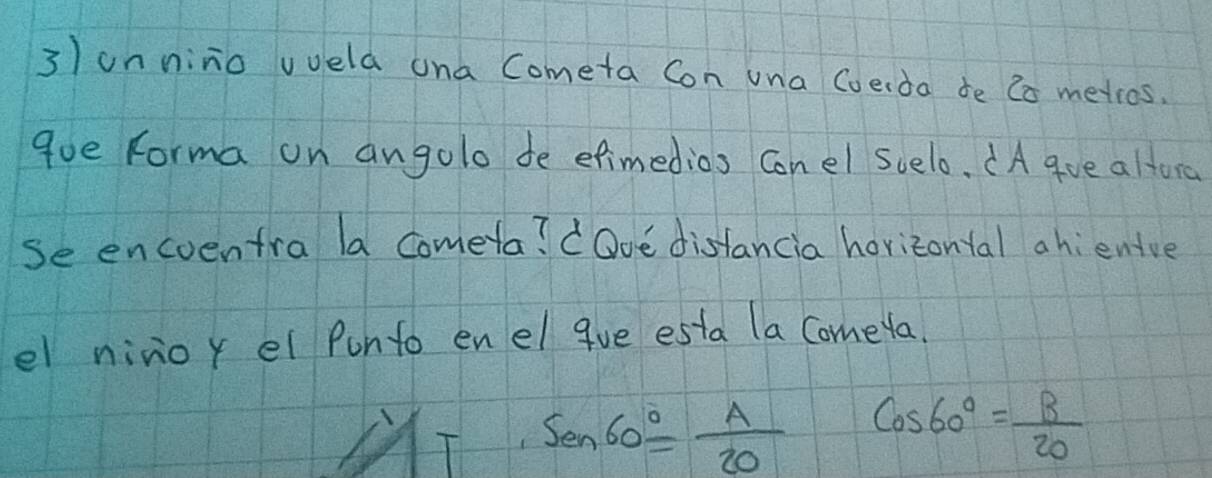 3) un niño vuela una Cometa Con una Cuerda de 20 metros.
que Forma un angulo de efimedios Con el Suelo. ¿A que altura
Se encuentra la Cometa? ¿Qué distancia horizontal ahi entre
el niño y el Punto en el que esta la Cometa.
Sen 60° = A/20 Cos 60° = B/20